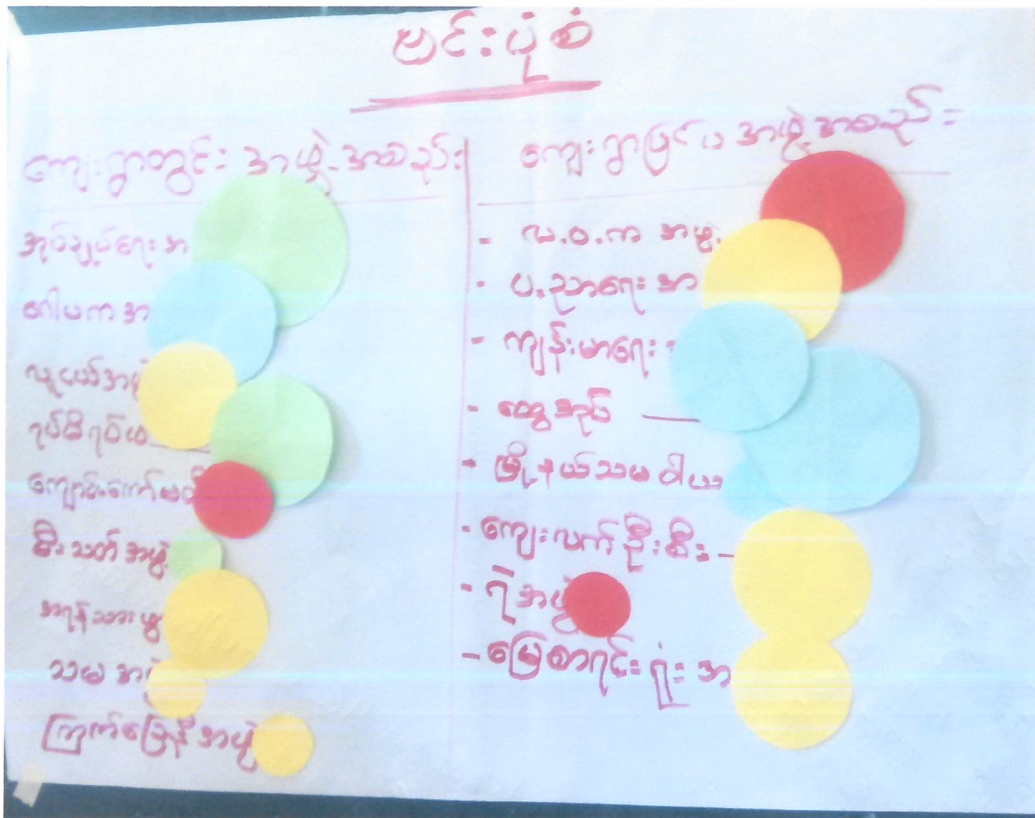 ဗင်းပုံစံ
ကျေးရွာတွင်း အဖွဲ့အစည်း
အုပ်ချုပ်ရေး အ
လူငယ်အဖွဲ့
မီးသတ်အဖွဲ့
သမ အဖွဲ့
ကြက်ခြေနီအဖွဲ့
ကျေးရွာပြင်ပ အဖွဲ့အစည်း
- လ.ဝ.က အဖွဲ့
- ပညာရေး အ
- ကျန်းမာရေး
- ထွေအုပ်
- မြို့နယ်သမဝါယ
- ကျေးလက်ဦးစီး
- ရဲအဖွဲ့
- မြေစာရင်းရုံး အ